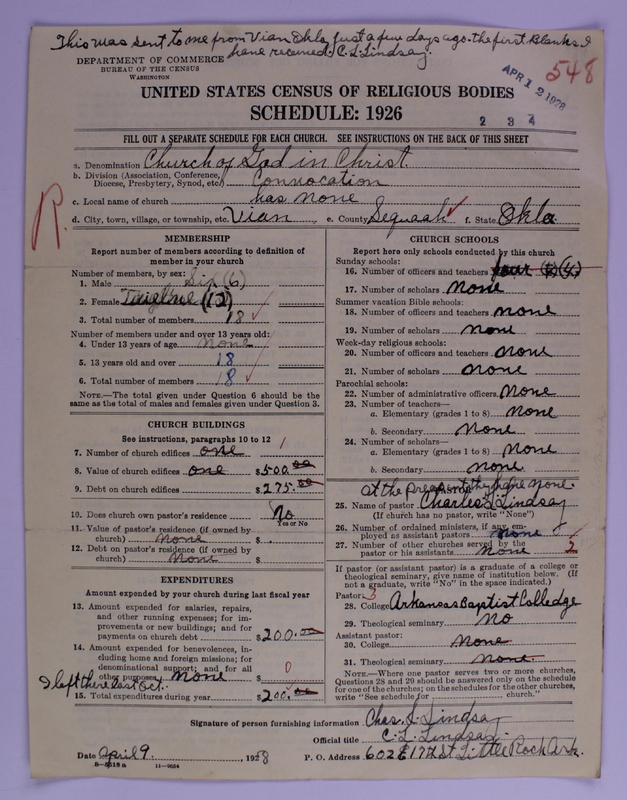 This was sent to me from Vian Okla just a few days ago - the first Blanks I
have received. C.L. Lindsay.
DEPARTMENT OF COMMERCE
BUREAU OF THE CENSUS
WASHINGTON
APR 12 1928
548
UNITED STATES CENSUS OF RELIGIOUS BODIES
SCHEDULE: 1926
2 3 4
FILL OUT A SEPARATE SCHEDULE FOR EACH CHURCH. SEE INSTRUCTIONS ON THE BACK OF THIS SHEET
a. Denomination Church of God in Christ
b. Division (Association, Conference, Diocese, Presbytery, Synod, etc.) Convocation
c. Local name of church has none
d. City, town, village, or township, etc. Vian e. County Sequaah f. State Okla
R.
MEMBERSHIP
Report number of members according to definition of
member in your church
Number of members, by sex:
1. Male Six (6)
2. Female (12)
3. Total number of members 18
Number of members under and over 13 years old:
4. Under 13 years of age none
5. 13 years old and over 18
6. Total number of members 18
NOTE.—The total given under Question 6 should be the
same as the total of males and females given under Question 3.
CHURCH BUILDINGS
See instructions, paragraphs 10 to 12
7. Number of church edifices one 1
8. Value of church edifices one $500.00
9. Debt on church edifices $275.00
10. Does church own pastor's residence No
Yes or No
11. Value of pastor's residence (if owned by
church) None $
12. Debt on pastor's residence (if owned by
church) None $
EXPENDITURES
Amount expended by your church during last fiscal year
13. Amount expended for salaries, repairs,
and other running expenses; for im-
provements or new buildings; and for
payments on church debt $200.00
14. Amount expended for benevolences, in-
cluding home and foreign missions; for
denominational support; and for all
other purposes None $ 0
I left there last Oct.
15. Total expenditures during year $200.00
CHURCH SCHOOLS
Report here only schools conducted by this church
Sunday schools:
16. Number of officers and teachers four (4)
17. Number of scholars None
Summer vacation Bible schools:
18. Number of officers and teachers none
19. Number of scholars none
Week-day religious schools:
20. Number of officers and teachers none
21. Number of scholars none
Parochial schools:
22. Number of administrative officers None
23. Number of teachers—
a. Elementary (grades 1 to 8) None
b. Secondary None
24. Number of scholars—
a. Elementary (grades 1 to 8) None
b. Secondary none
at the present they have none.
PASTOR
25. Name of pastor Charles L Lindsay
(If church has no pastor, write "None")
26. Number of ordained ministers, if any, em-
ployed as assistant pastors none
27. Number of other churches served by the
pastor or his assistants None 2
If pastor (or assistant pastor) is a graduate of a college or
theological seminary, give name of institution below. (If
not a graduate, write "No" in the space indicated.)
Pastor: 3
28. College Arkansas Baptist Colledge
29. Theological seminary No
Assistant pastor:
30. College None
31. Theological seminary None.
NOTE.—Where one pastor serves two or more churches,
Questions 28 and 29 should be answered only on the schedule
for one of the churches; on the schedules for the other churches,
write "See schedule for ______ church."
Signature of person furnishing information Chas. L. Lindsay
Official title C. L. Lindsay.
Date April 9, 1928 P. O. Address 602 E 17th St Little Rock Ark.
8-5518a 11-9554